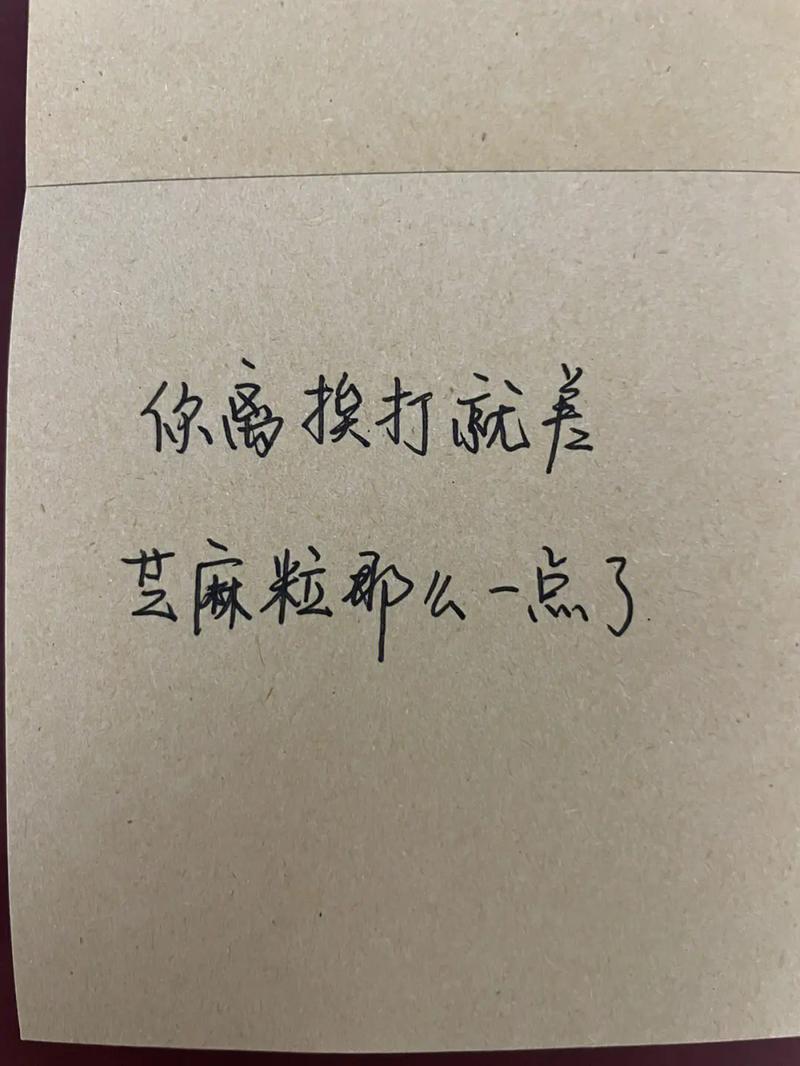 你离挨打就差
芝麻粒那么一点了